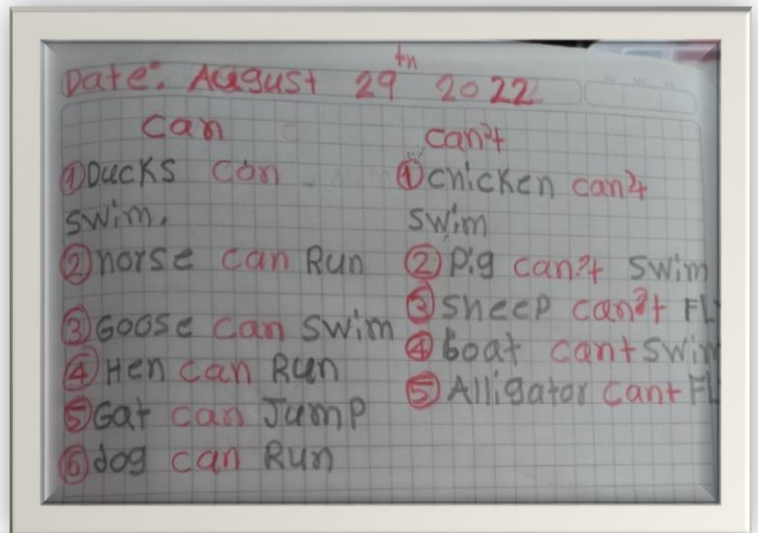 Date: August 29th 2022
can
① Ducks can
swim.
② horse can Run
③ Goose can swim
④ Hen can Run
⑤ Gat can Jump
⑥ dog can Run
can't
① chicken can't
swim
② pig can't swim
③ sheep can't FL
④ Goat cant swim
⑤ Alligator cant FL